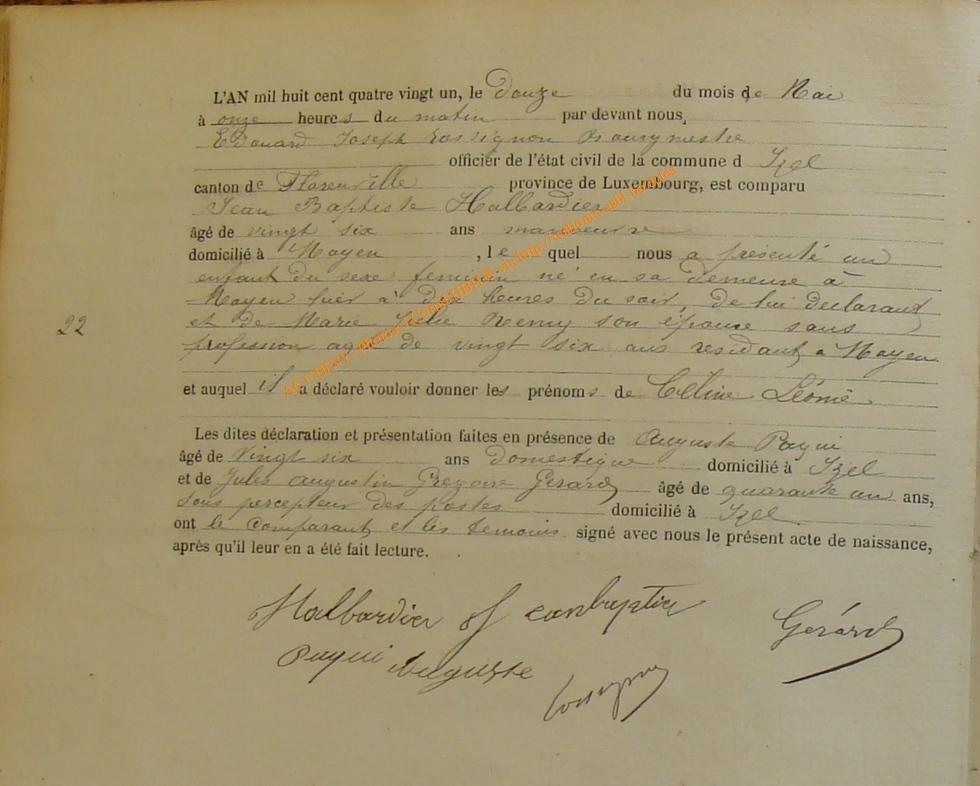 L'AN mil huit cent quatre vingt un, le Douze du mois de Mai
à onze heures du matin par devant nous,
Edouard Joseph Rossignon Bourgmestre
officier de l'état civil de la commune d Izel
canton de Florenville province de Luxembourg, est comparu
Jean Baptiste Halbardier
âgé de vingt six ans manoeuvre
domicilié à Moyen , le quel nous a présenté un
enfant du sexe feminin né en sa demeure à
Moyen hier à dix heures du soir, de lui declarant
22 et de Marie Julie Remy son épouse sans
profession agée de vingt six ans residant à Moyen
et auquel il a déclaré vouloir donner les prénoms de Celine Léonie
Les dites déclaration et présentation faites en présence de Auguste Paqui
âgé de vingt six ans domestique domicilié à Izel
et de Jules Augustin Gregoire Gerard âgé de quarante un ans,
sous percepteur des postes domicilié à Izel
ont le comparant et les temoins signé avec nous le présent acte de naissance,
après qu'il leur en a été fait lecture.
Halbardier J eanbaptier Gérard
Paqui Auguste